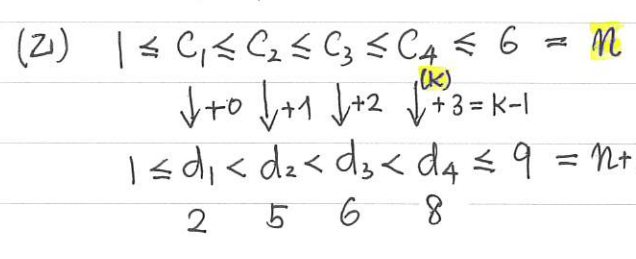 (Z1) 1 ≤ C₁ ≤ C₂ ≤ C₃ ≤ C₄ ≤ 6 = n
(k)
↓+0 ↓+1 ↓+2 ↓+3 = k-1
1 ≤ d₁ < d₂ < d₃ < d₄ ≤ 9 = n+
2 5 6 8